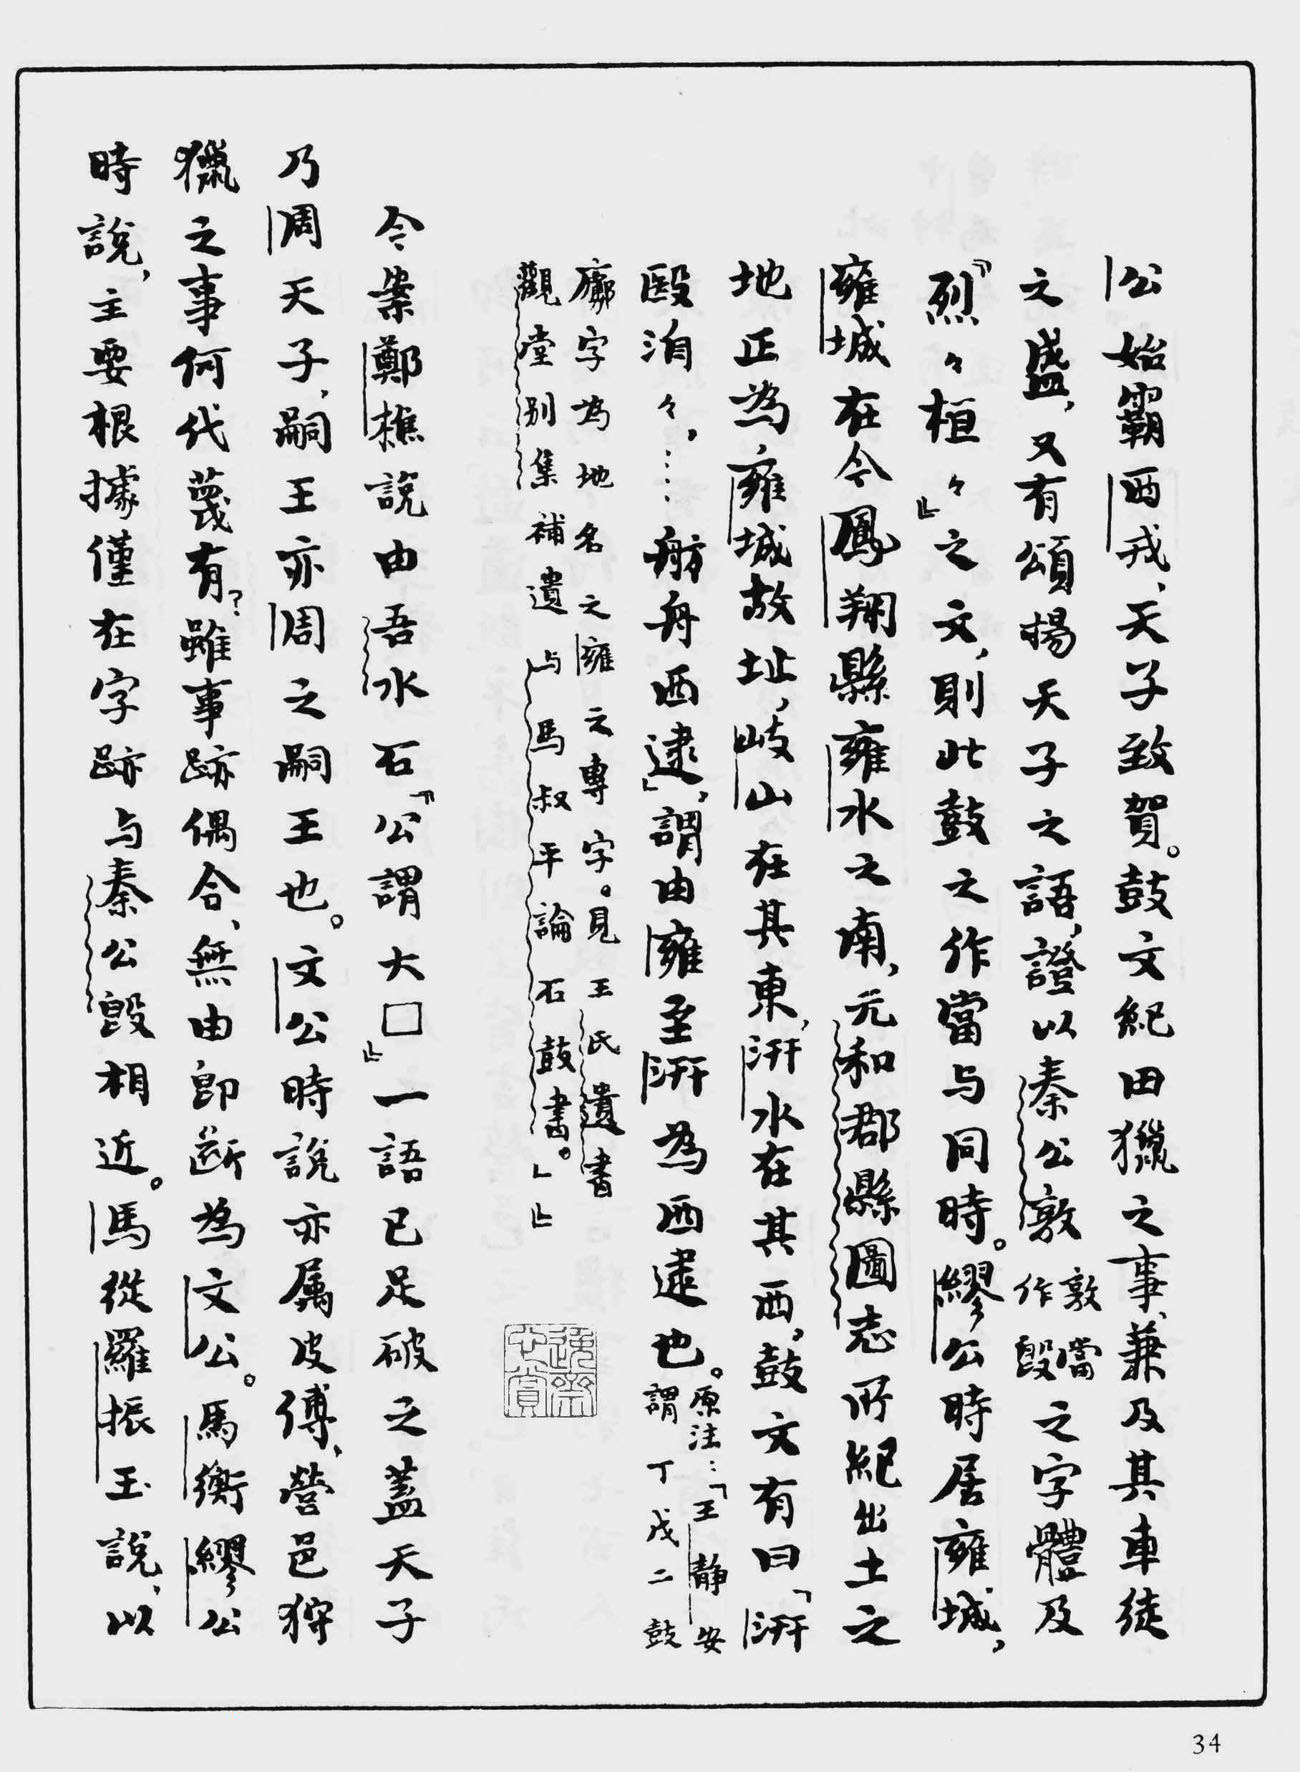 公始霸西戎、天子致賀。鼓文紀田獵之事、兼及其車徒
之盛，又有頌揚天子之語，證以秦公敦敦當作𣪘之字體及
『烈々桓々』之文，則此鼓之作當与同時。繆公時居雍城，
雍城在今鳳翔縣雍水之南，元和郡縣圖志所紀出土之
地正為雍城故址，岐山在其東，汧水在其西，鼓文有曰「汧
殹洎々，……舫舟西逮」，謂由雍至汧為西逮也。原注：「王静安謂丁戊二鼓
廓字為地名之雍之專字。見王氏遺書
觀堂别集補遺与馬叔平論石鼓書。」』
今案鄭樵說由吾水石『公謂大□』一語已足破之蓋天子
乃周天子，嗣王亦周之嗣王也。文公時說亦属皮傅、營邑狩
獵之事何代蔑有？雖事跡偶合、無由即断為文公。馬衡繆公
時說，主要根據僅在字跡与秦公𣪘相近。馬從羅振玉說，以
34